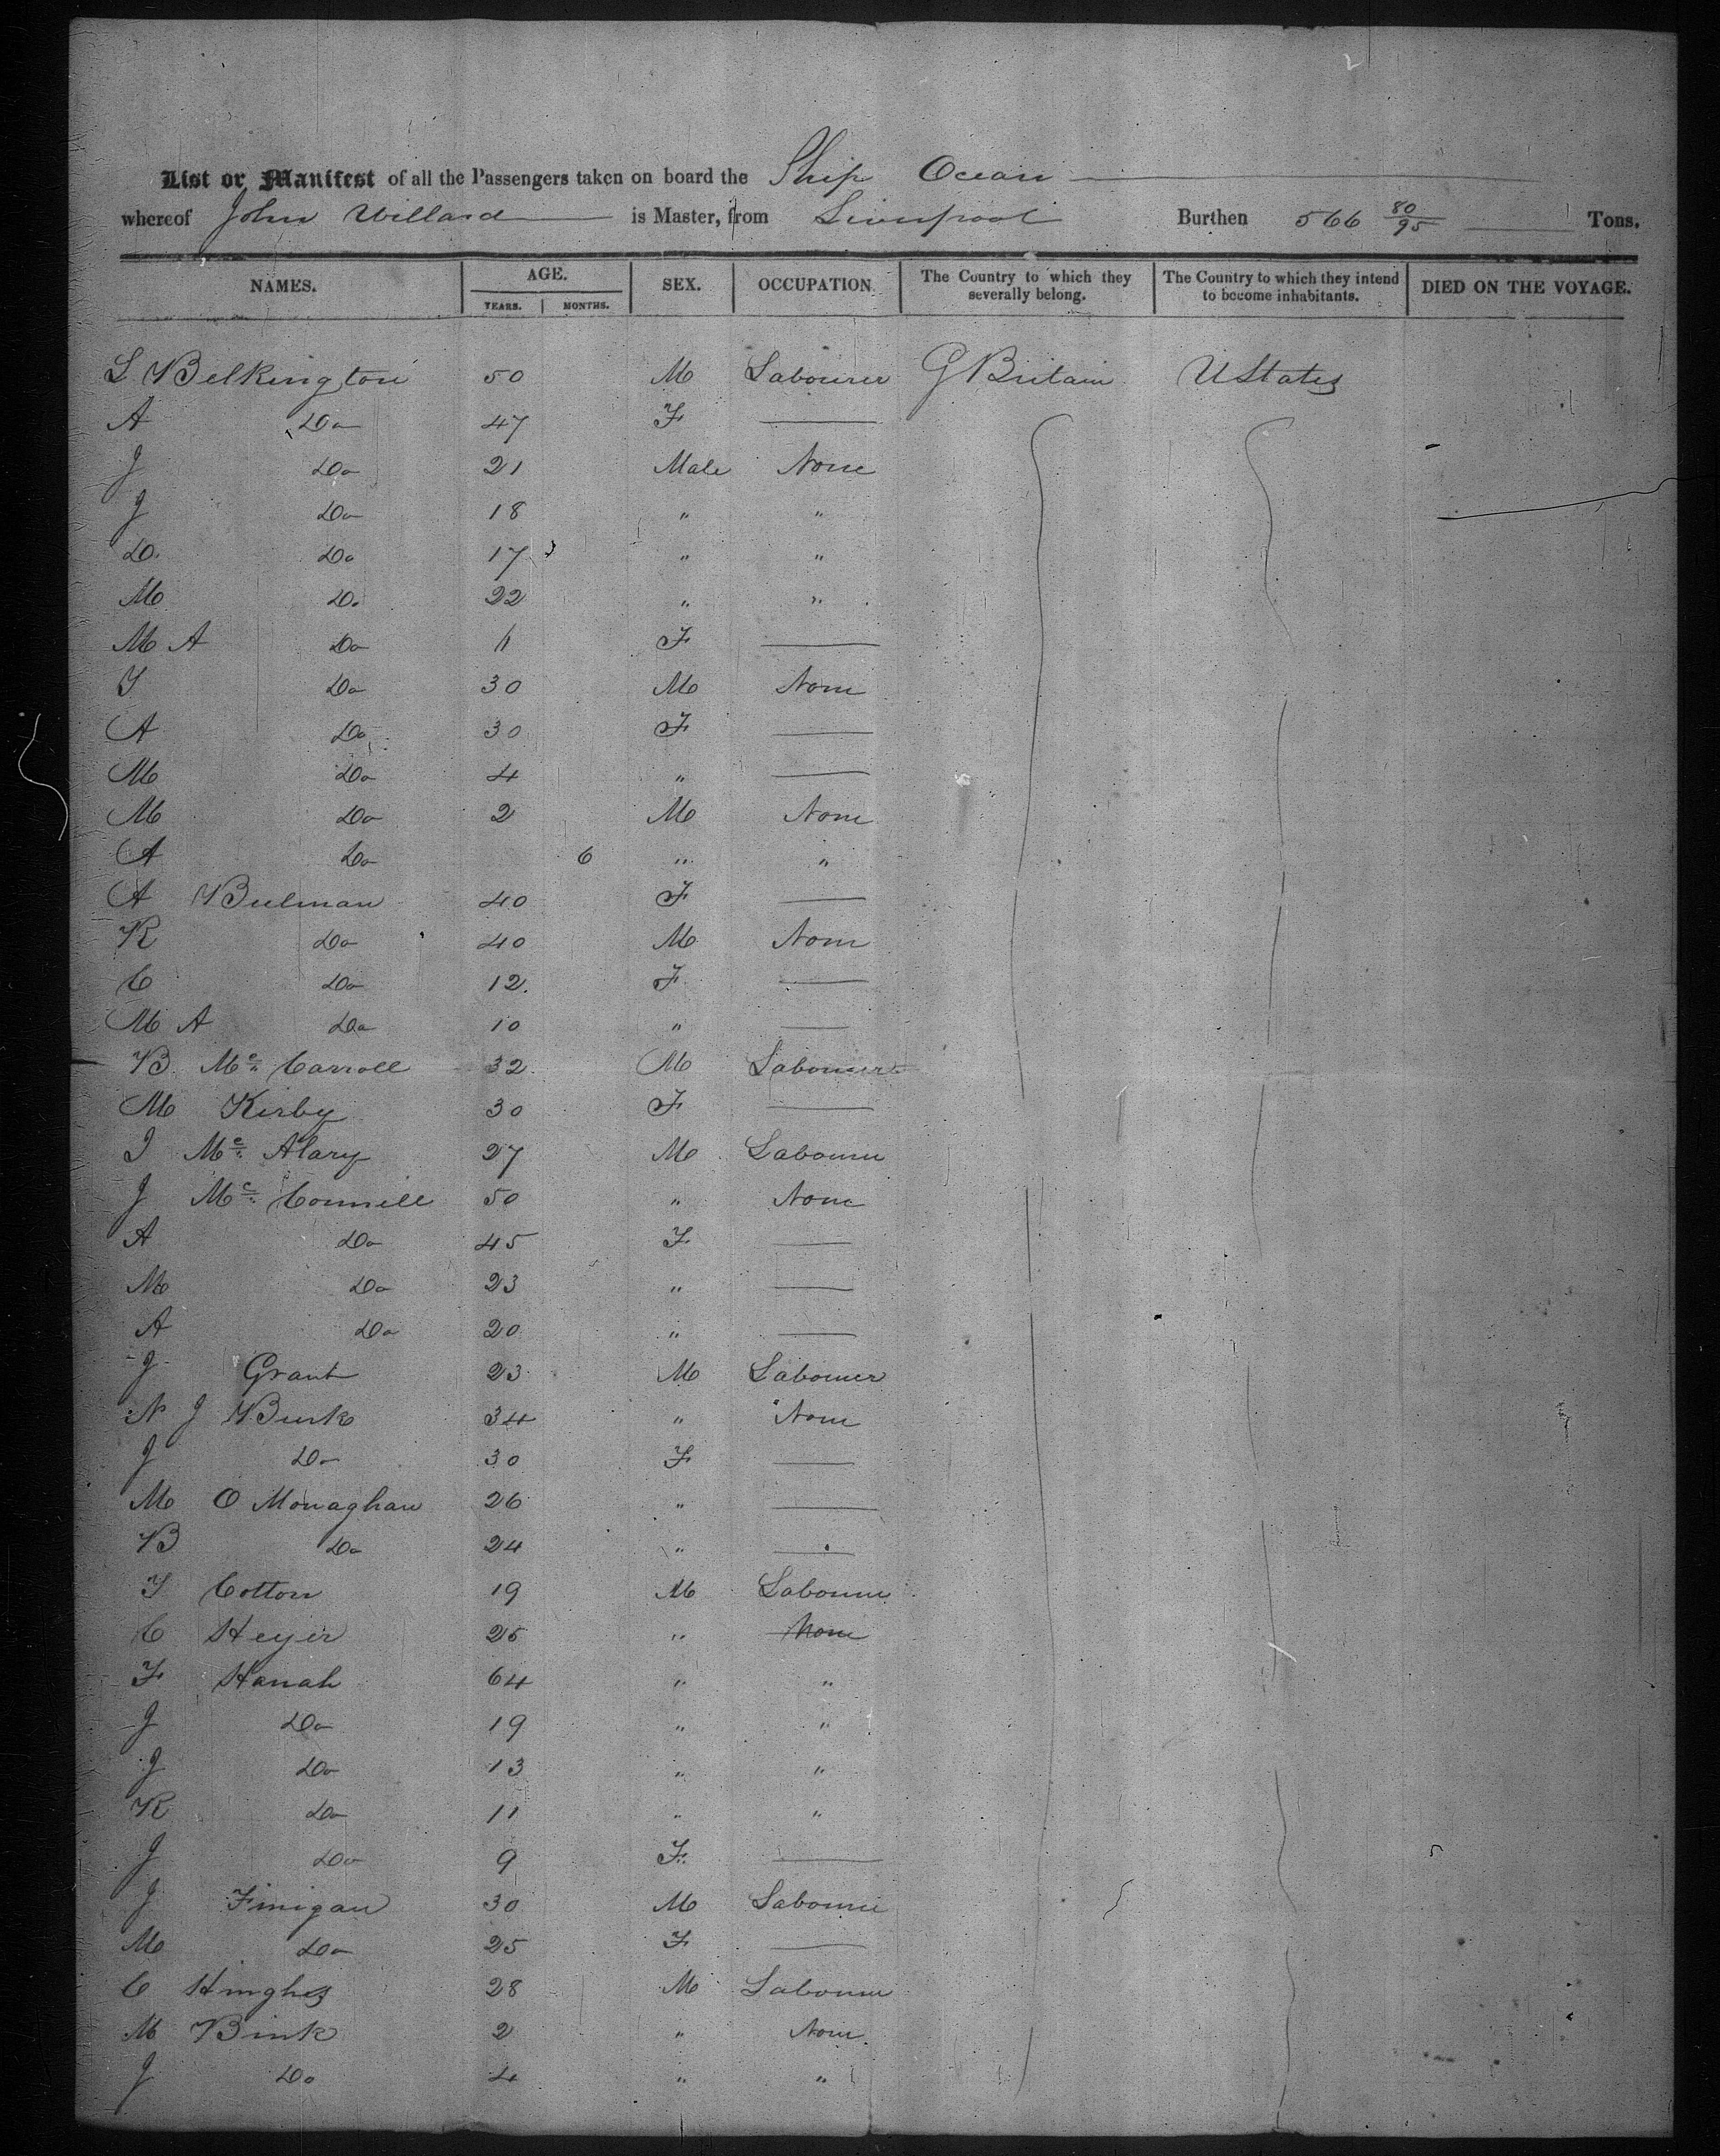 List or Manifest of all the Passengers taken on board the Ship Ocean
whereof John Willard is Master, from Liverpool Burthen 566 80/95 Tons.
NAMES. AGE. SEX. OCCUPATION The Country to which they severally belong. The Country to which they intend to become inhabitants. DIED ON THE VOYAGE.
YEARS. MONTHS.
L Belkington 50 M Labourer G Britain U States
A Do 47 F
J Do 21 Male None
J Do 18 " "
D. Do 17 " "
M Do 22 " "
M A Do 11 F
T Do 30 M None
A Do 30 F
M Do 4 "
M Do 2 M None
A Do 6 " "
A Bulman 40 F
R Do 40 M None
C Do 12. F
M A Do 10 "
B. Mc Carroll 32 M Labourer
M Kirby 30 F
J Mc Alary 27 M Labourer
J Mc Connell 50 " None
A Do 45 F
M Do 23 "
A Do 20 "
J Grant 23 M Labourer
N J Burk 34 " None
J Do 30 F
M O Monaghan 26 "
B Do 24 "
T Cotton 19 M Labourer
C Heyer 25 " None
F Hanah 64 " "
J Do 19 " "
J Do 13 " "
R Do 11 " "
J Do 9 F.
J Finigan 30 M Labourer
M Do 25 F
C Hinghes 28 M Labourer
M Bink 2 " None
J Do 4 " "